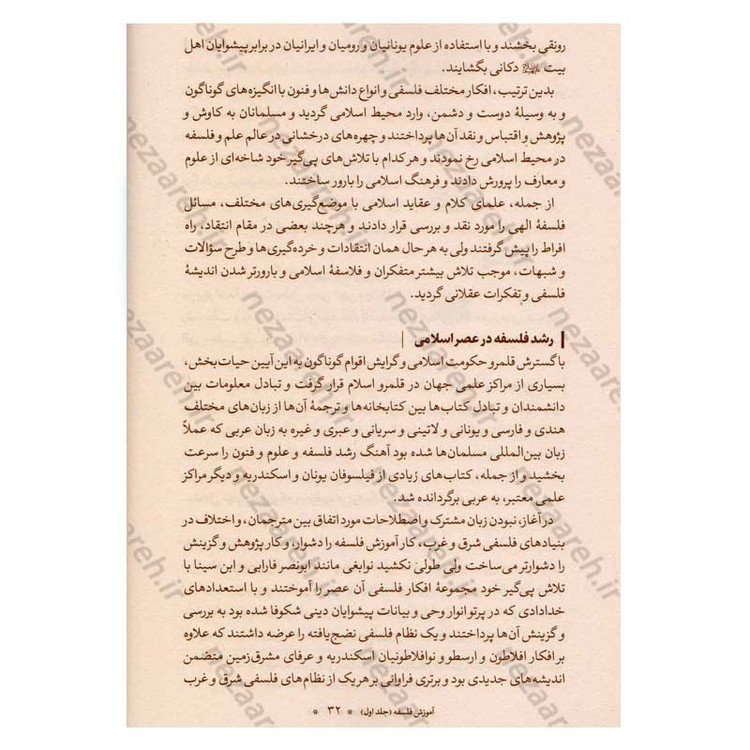 رونقی بخشند و با استفاده از علوم یونانیان و رومیان و ایرانیان در برابر پیشوایان اهل
بیت دکانی بگشایند.
بدین ترتیب، افکار مختلف فلسفی و انواع دانش‌ها و فنون با انگیزه‌های گوناگون
و به وسیلهٔ دوست و دشمن، وارد محیط اسلامی گردید و مسلمانان به کاوش و
پژوهش و اقتباس و نقد آن‌ها پرداختند و چهره‌های درخشانی در عالم علم و فلسفه
در محیط اسلامی رخ نمودند و هر کدام با تلاش‌های پی‌گیر خود شاخه‌ای از علوم
و معارف را پرورش دادند و فرهنگ اسلامی را بارور ساختند.
از جمله، علمای کلام و عقاید اسلامی با موضع‌گیری‌های مختلف، مسائل
فلسفهٔ الهی را مورد نقد و بررسی قرار دادند و هرچند بعضی در مقام انتقاد، راه
افراط را پیش گرفتند ولی به هر حال همان انتقادات و خرده‌گیری‌ها و طرح سؤالات
و شبهات، موجب تلاش بیشتر متفکران و فلاسفهٔ اسلامی و بارورتر شدن اندیشهٔ
فلسفی و تفکرات عقلانی گردید.
رشد فلسفه در عصر اسلامی
با گسترش قلمرو حکومت اسلامی و گرایش اقوام گوناگون به این آیین حیات‌بخش،
بسیاری از مراکز علمی جهان در قلمرو اسلام قرار گرفت و تبادل معلومات بین
دانشمندان و تبادل کتاب‌ها بین کتابخانه‌ها و ترجمهٔ آن‌ها از زبان‌های مختلف
هندی و فارسی و یونانی و لاتینی و سریانی و عبری و غیره به زبان عربی که عملاً
زبان بین‌المللی مسلمان‌ها شده بود آهنگ رشد فلسفه و علوم و فنون را سرعت
بخشید و از جمله، کتاب‌های زیادی از فیلسوفان یونان و اسکندریه و دیگر مراکز
علمی معتبر، به عربی برگردانده شد.
در آغاز، نبودن زبان مشترک و اصطلاحات مورد اتفاق بین مترجمان، و اختلاف در
بنیادهای فلسفی شرق و غرب، کار آموزش فلسفه را دشوار، و کار پژوهش و گزینش
را دشوارتر می‌ساخت ولی طولی نکشید نوابغی مانند ابونصر فارابی و ابن سینا با
تلاش پی‌گیر خود مجموعهٔ افکار فلسفی آن عصر را آموختند و با استعدادهای
خدادادی که در پرتو انوار وحی و بیانات پیشوایان دینی شکوفا شده بود به بررسی
و گزینش آن‌ها پرداختند و یک نظام فلسفی نضج‌یافته را عرضه داشتند که علاوه
بر افکار افلاطون و ارسطو و نوافلاطونیان اسکندریه و عرفای مشرق‌زمین متضمن
اندیشه‌های جدیدی بود و برتری فراوانی بر هر یک از نظام‌های فلسفی شرق و غرب
آموزش فلسفه (جلد اول) * ۳۲ *
nezaareh.ir